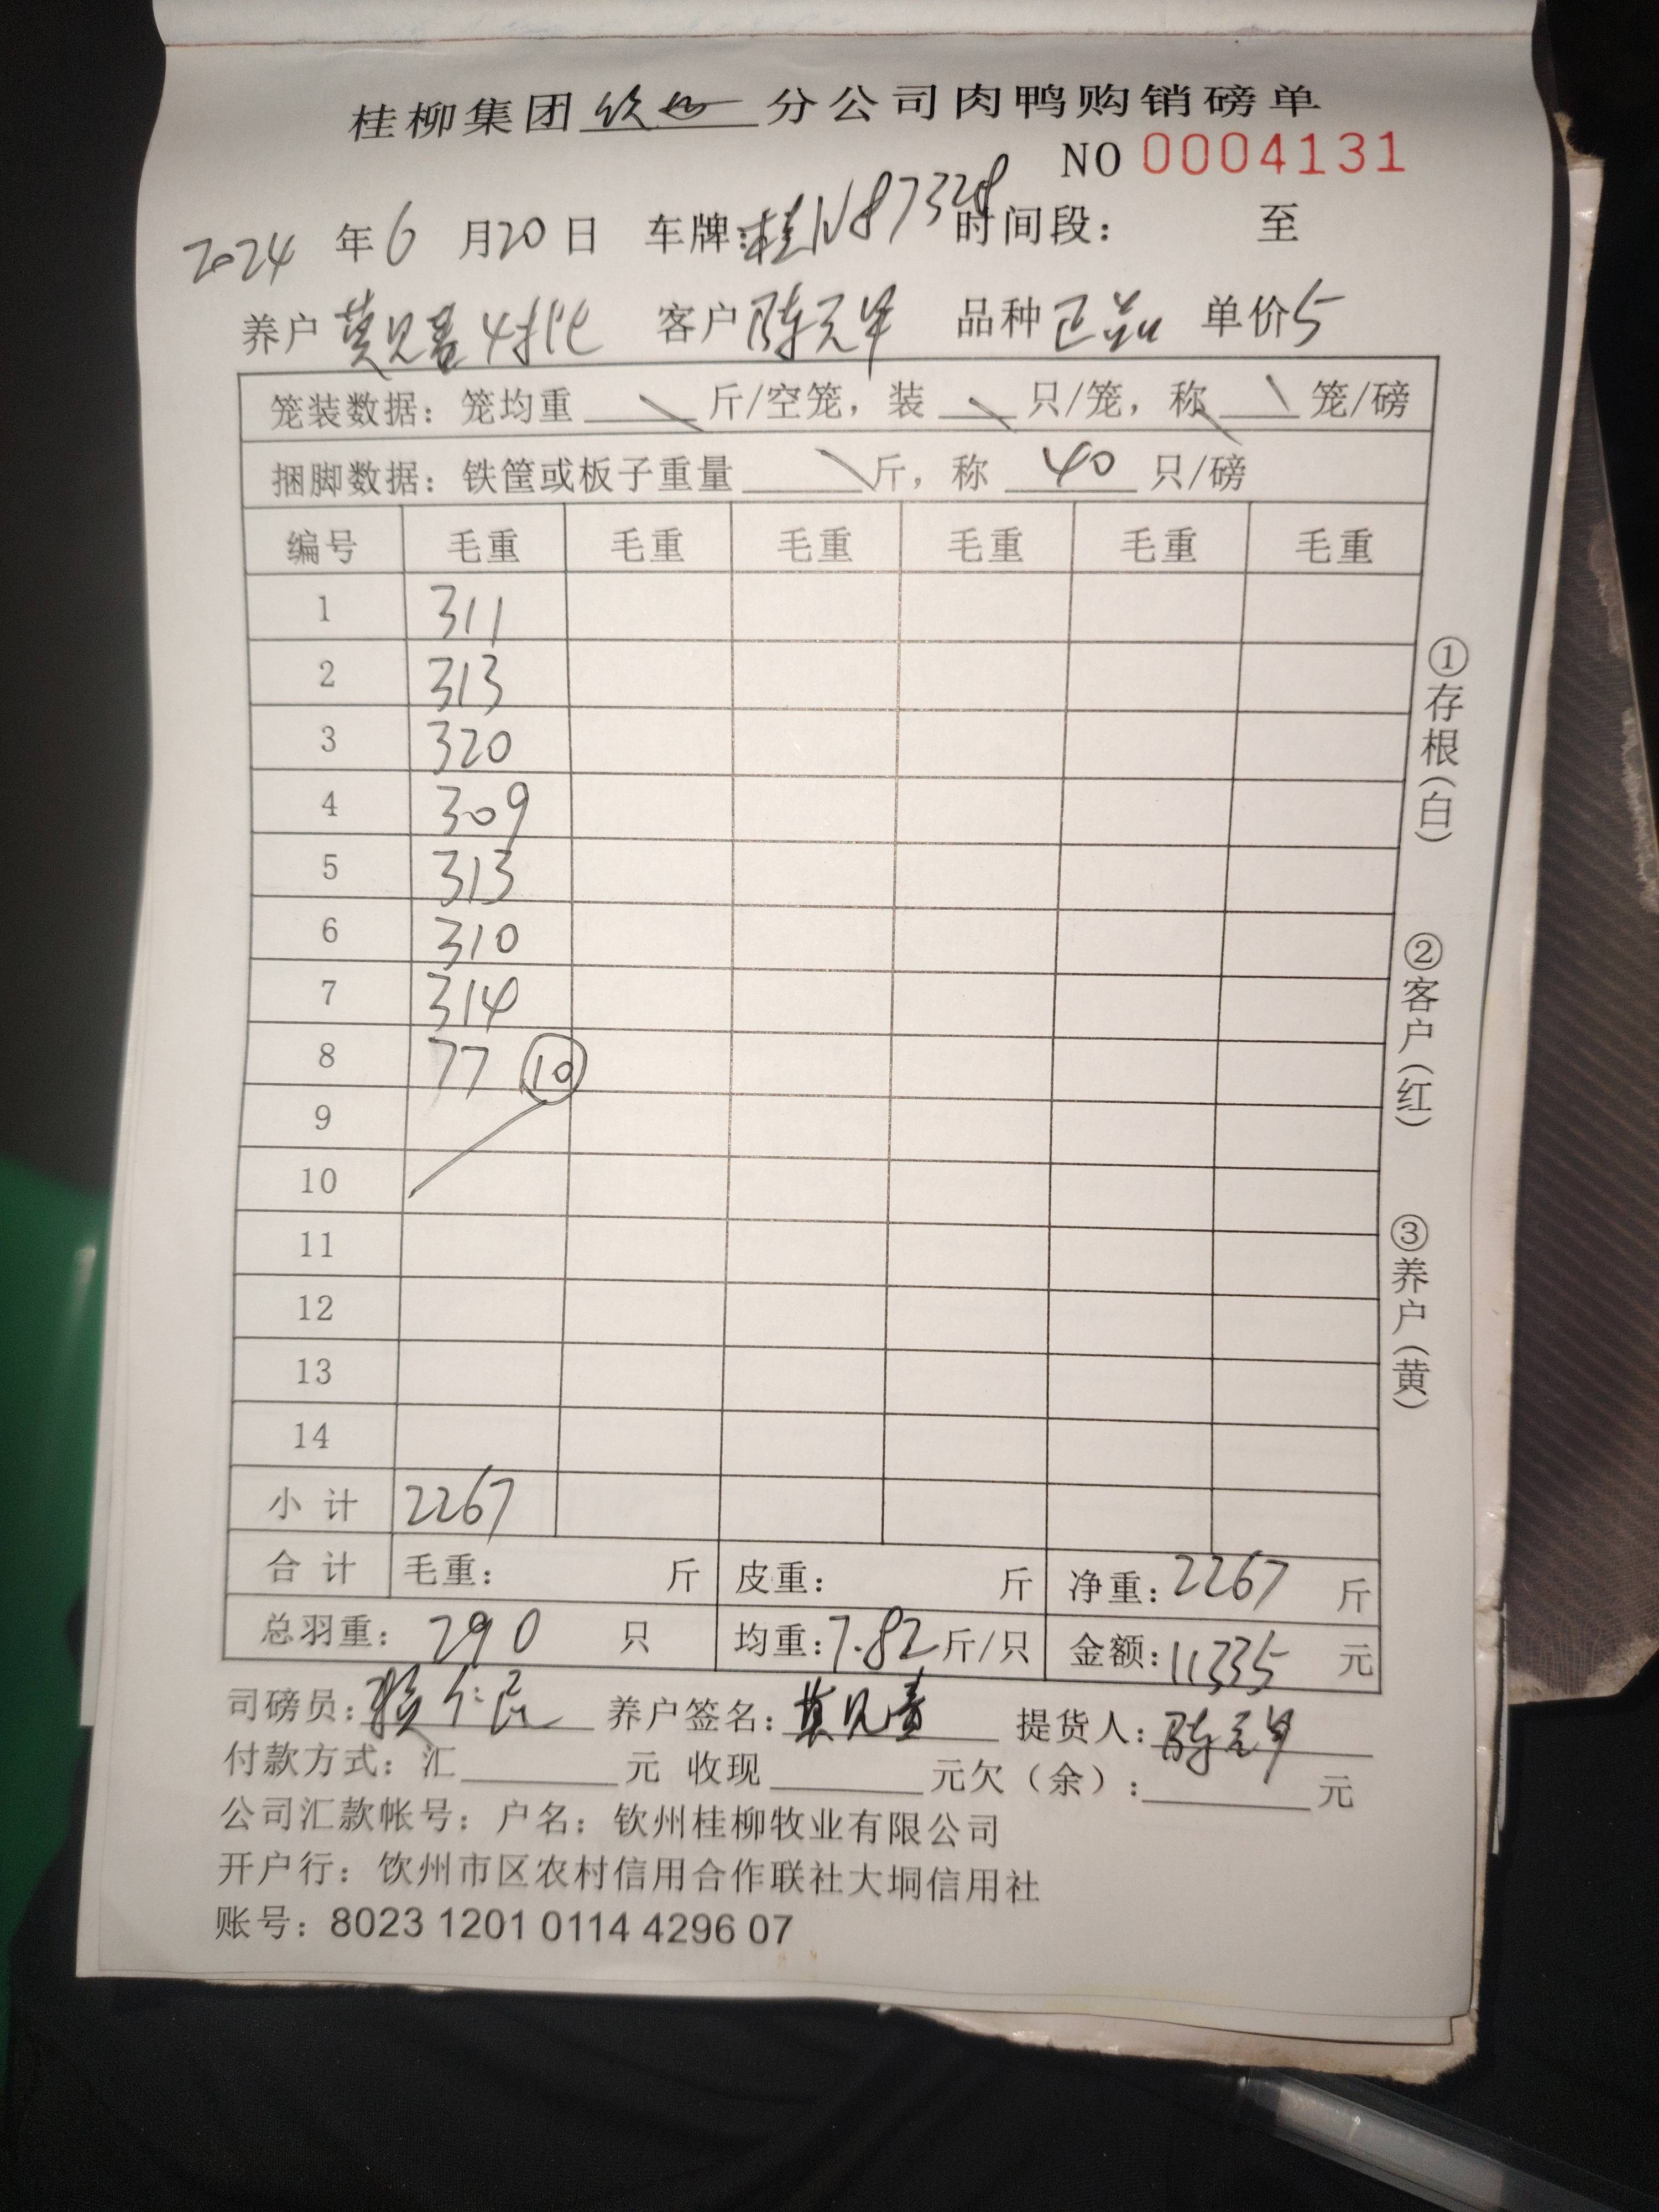 桂柳集团钦州分公司肉鸭购销磅单
NO 0004131
2024 年 6 月 20 日 车牌:桂N87328 时间段: 至
养户 莫见喜 4批 客户 陈元军 品种 正品 单价 5
笼装数据: 笼均重 \ 斤/空笼, 装 \ 只/笼, 称 \ 笼/磅
捆脚数据: 铁筐或板子重量 \ 斤, 称 40 只/磅
编号 毛重 毛重 毛重 毛重 毛重 毛重
1 311
2 313
3 320
4 309
5 313
6 310
7 314
8 77 ⑩
9
10
11
12
13
14
小 计 2267
合 计 毛重: 斤 皮重: 斤 净重: 2267 斤
总羽重: 290 只 均重: 7.82 斤/只 金额: 11335 元
司磅员: 养户签名: 莫见喜 提货人: 陈元军
付款方式: 汇 元 收现 元欠(余): 元
公司汇款帐号: 户名: 钦州桂柳牧业有限公司
开户行: 饮州市区农村信用合作联社大垌信用社
账号: 8023 1201 0114 4296 07
①存根(白)
②客户(红)
③养户(黄)